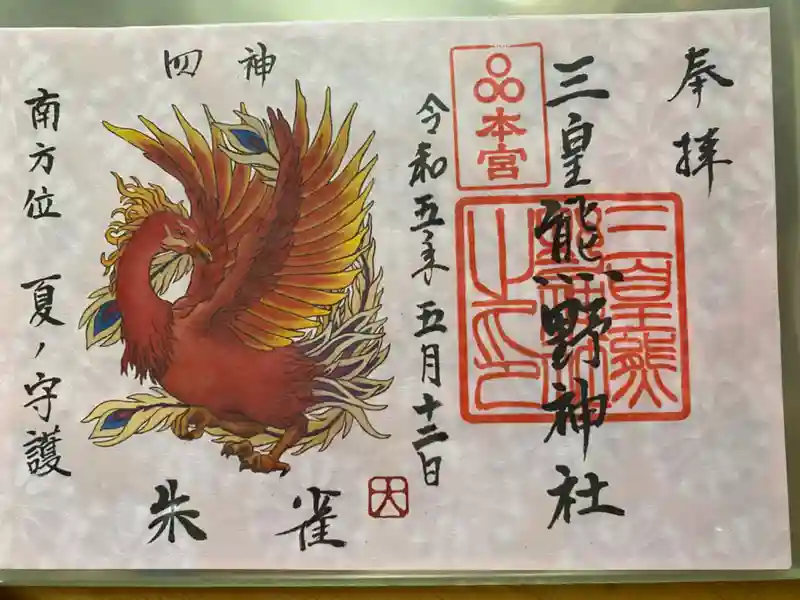 奉拝
三皇熊野神社
本宮
三皇熊
令和五年五月十二日
四神
朱雀
大
南方位 夏ノ守護